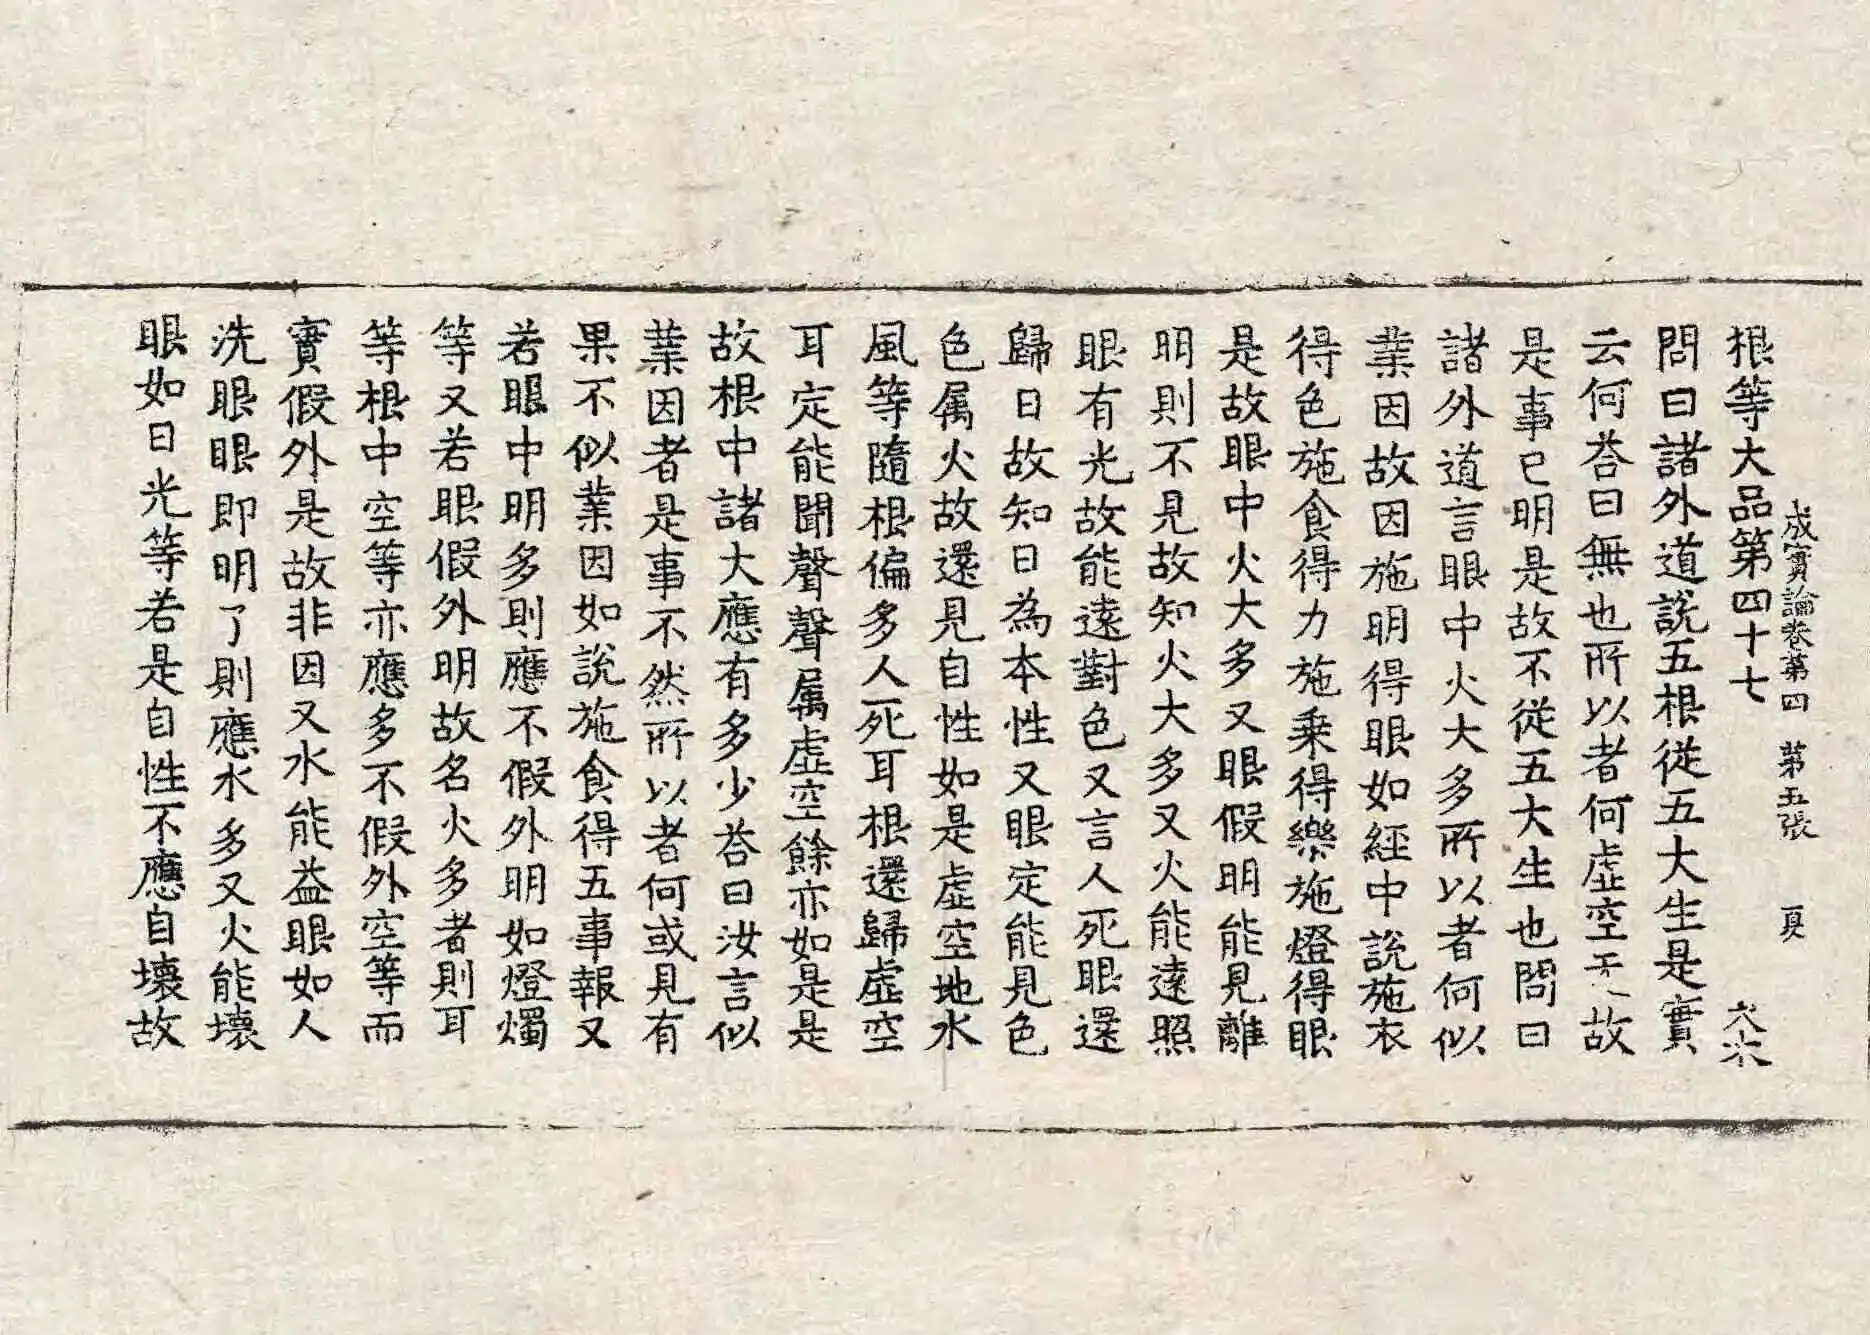 成實論卷第四　第五張　㝫
根等大品第四十七
問曰諸外道說五根從五大生是實
云何荅曰無也所以者何虛空无故
是事已明是故不從五大生也問曰
諸外道言眼中火大多所以者何似
業因故因施明得眼如經中說施衣
得色施食得力施乗得樂施燈得眼
是故眼中火大多又眼假明能見離
明則不見故知火大多又火能遠照
眼有光故能遠對色又言人死眼還
歸日故知日為本性又眼定能見色
色属火故還見自性如是虛空地水
風等隨根偏多人死耳根還歸虛空
耳定能聞聲聲属虛空餘亦如是是
故根中諸大應有多少荅曰汝言似
業因者是事不然所以者何或見有
果不似業因如說施食得五事報又
若眼中明多則應不假外明如燈燭
等又若眼假外明故名火多者則耳
等根中空等亦應多不假外空等而
實假外是故非因又水能益眼如人
洗眼眼即明了則應水多又火能壞
眼如日光等若是自性不應自壞故